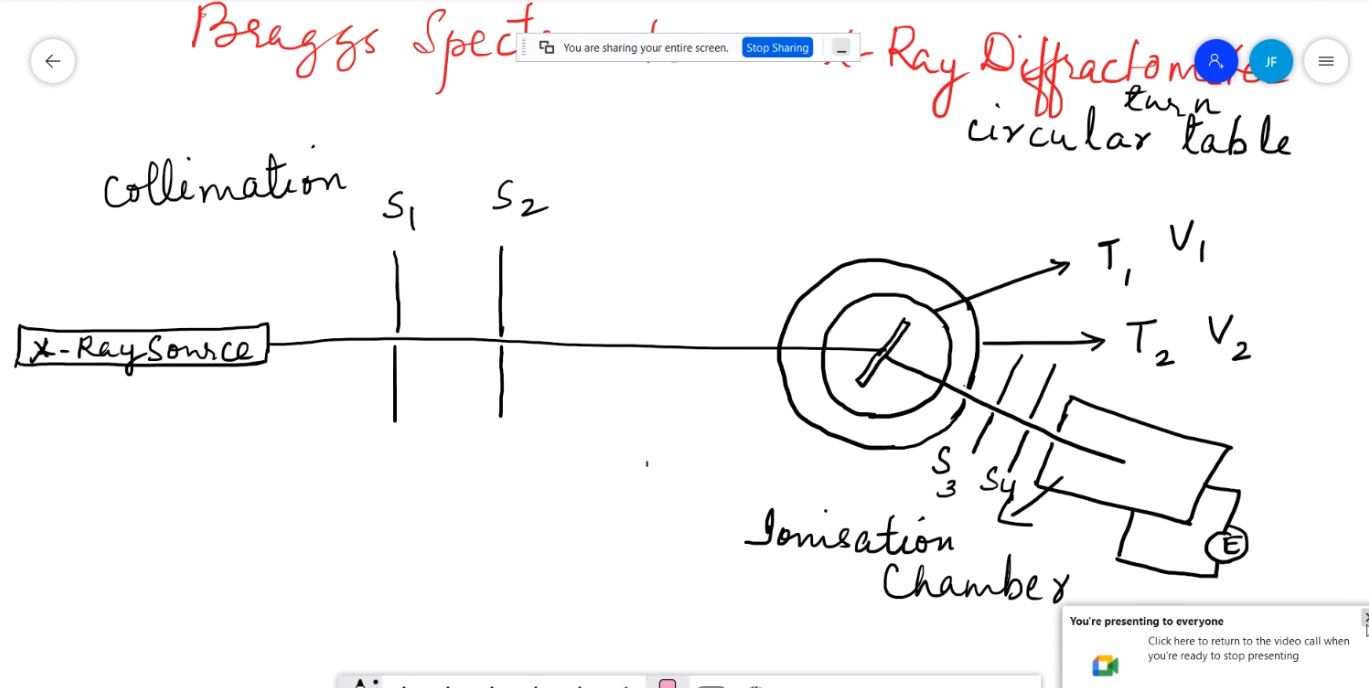 Braggs Spect
X-Ray Diffractometer
You are sharing your entire screen. Stop Sharing
JF
turn
circular table
collimation
S1
S2
T1 V1
T2 V2
X-Ray Source
S3 S4
Ionisation
Chamber
E
You're presenting to everyone
Click here to return to the video call when
you're ready to stop presenting